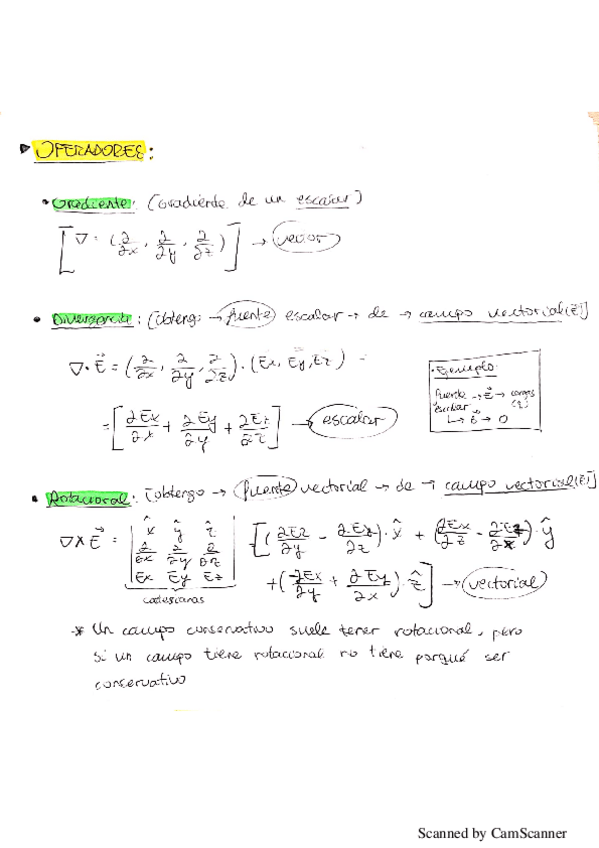 ▶ OPERADORES:
• Gradiente: (Gradiente de un escalar)
[∇ = (∂/∂x, ∂/∂y, ∂/∂z)] → vector
• Divergencia: (obtengo → fuente escalar → de → campo vectorial (E))
∇·E⃗ = (∂/∂x, ∂/∂y, ∂/∂z)·(Ex, Ey, Ez) =
= [∂Ex/∂x + ∂Ey/∂y + ∂Ez/∂z] → escalar
• Ejemplo:
fuente → E⃗ → campo
escalar
• Rotacional: (obtengo → fuente vectorial → de → campo vectorial (E))
∇×E⃗ = | x̂ ŷ ẑ | ∂/∂x ∂/∂y ∂/∂z | Ex Ey Ez |
cartesianas
[(∂Ez/∂y − ∂Ey/∂z)·x̂ + (∂Ex/∂z − ∂Ez/∂x)·ŷ
+(−∂Ex/∂y + ∂Ey/∂x)·ẑ] → vectorial
* Un campo conservativo suele tener rotacional, pero
si un campo tiene rotacional no tiene porqué ser
conservativo
Scanned by CamScanner